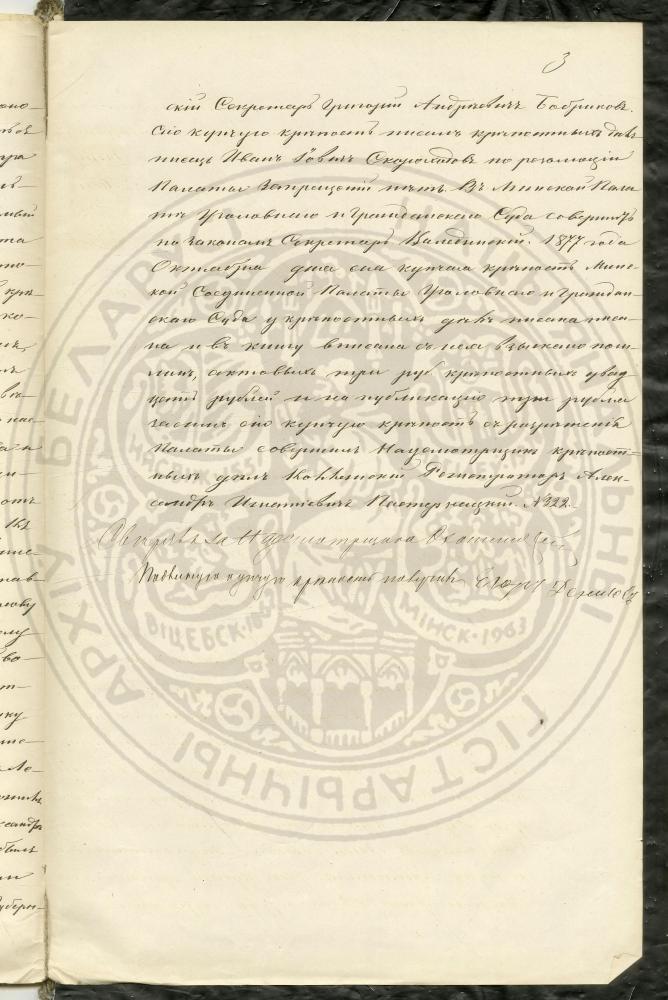 3
скій Секретарь Григорій Андреевичъ Бобриковъ.
Сію купчую крѣпость писалъ крѣпостныхъ дѣлъ
писецъ Иванъ по резолюціи
Палаты Запрещеній нѣтъ. Въ Минской Пала
тѣ Уголовнаго и Гражданскаго Суда совершить
по законамъ Секретарь 1877 года
Октября дня сія купчая крѣпость Минс-
кой Соединенной Палаты Уголовнаго и Граждан-
скаго Суда у крѣпостныхъ дѣлъ писана
на и въ книгу вписана съ нея взыскано пош-
линъ, актовыхъ три руб. крѣпостныхъ двад
цать рублей и на публикацію три рубля
сію купчую крѣпость съ разрѣшенія
Палаты совершилъ Надсмотрщикъ крѣпост-
ныхъ дѣлъ Коллежскій Регистраторъ Алек-
сандръ Игнатьевичъ Пастернацкій. №222.
за Надсмотрщика
Подлинную купчую крѣпость получилъ
БЕЛАРУСІ НАЦЫЯНАЛЬНЫ ГІСТАРЫЧНЫ АРХІЎ
ВІЦЕБСК
МІНСК·1963